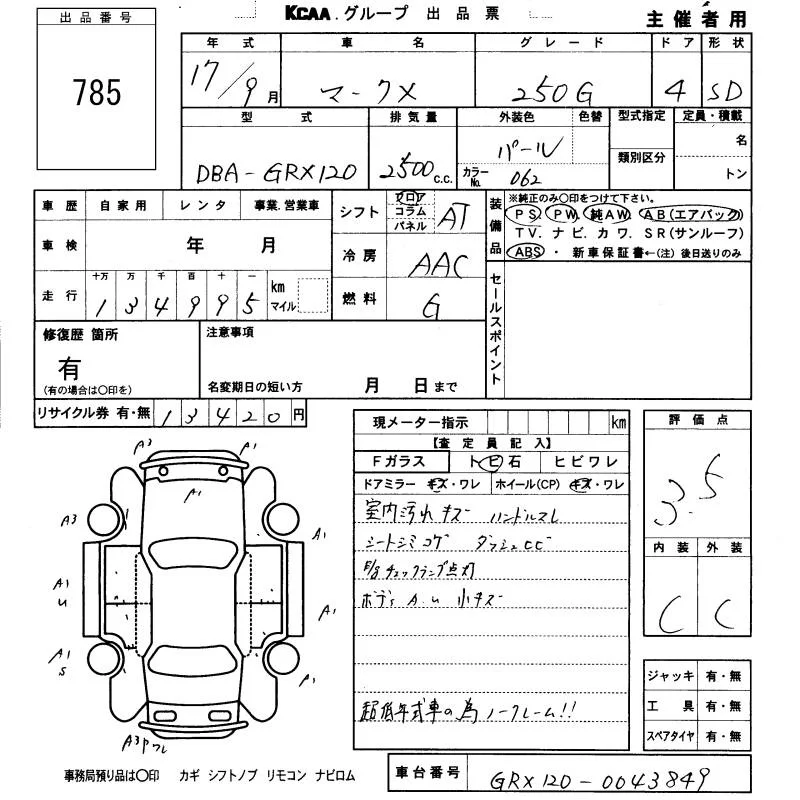 KCAA.グループ 出品票
主催者用
出品番号
785
年式 車名 グレード ドア 形状
17/9月 マークX 250G 4 SD
型式 排気量 外装色 色替 型式指定 定員・積載
DBA-GRX120 2500c.c. パール 名
カラーNo. 062 類別区分 トン
車歴 自家用 レンタ 事業.営業車
シフト フロア コラム パネル AT
装備品 ※純正のみ○印をつけて下さい。
PS PW 純AW AB(エアバック)
TV. ナビ. カワ. SR(サンルーフ)
ABS ・ 新車保証書←(注)後日送りのみ
車検 年 月
冷房 AAC
走行 十万 万 千 百 十 一
134995 km マイル
燃料 G
セールスポイント
修復歴 箇所
有
(有の場合は○印を)
注意事項
名変期日の短い方 月 日まで
リサイクル券 有・無 13420円
現メーター指示 km
【査定員記入】
Fガラス トビ石 ヒビワレ
ドアミラー キズ・ワレ ホイール(CP) キズ・ワレ
室内汚れ キズ ハンドルスレ
シートシミコゲ ダッシュCC
E/gチェックランプ点灯
ボデー A.U 小キズ
超低年式車の為 ノークレーム!!
評価点
3.5
内装 外装
C C
ジャッキ 有・無
工具 有・無
スペアタイヤ 有・無
A3 A1
A1
A3 A1
A1
U A1
A1
S A1
A3 Pワレ
事務局預り品は○印 カギ シフトノブ リモコン ナビロム
車台番号 GRX120-0043849